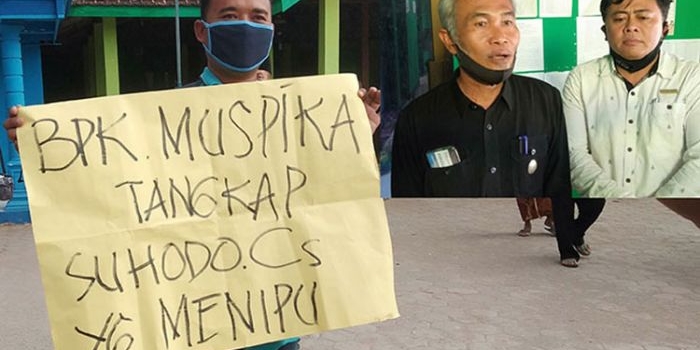 BPK. MUSPIKA
TANGKAP
SUHODO.Cs
YG MENIPU